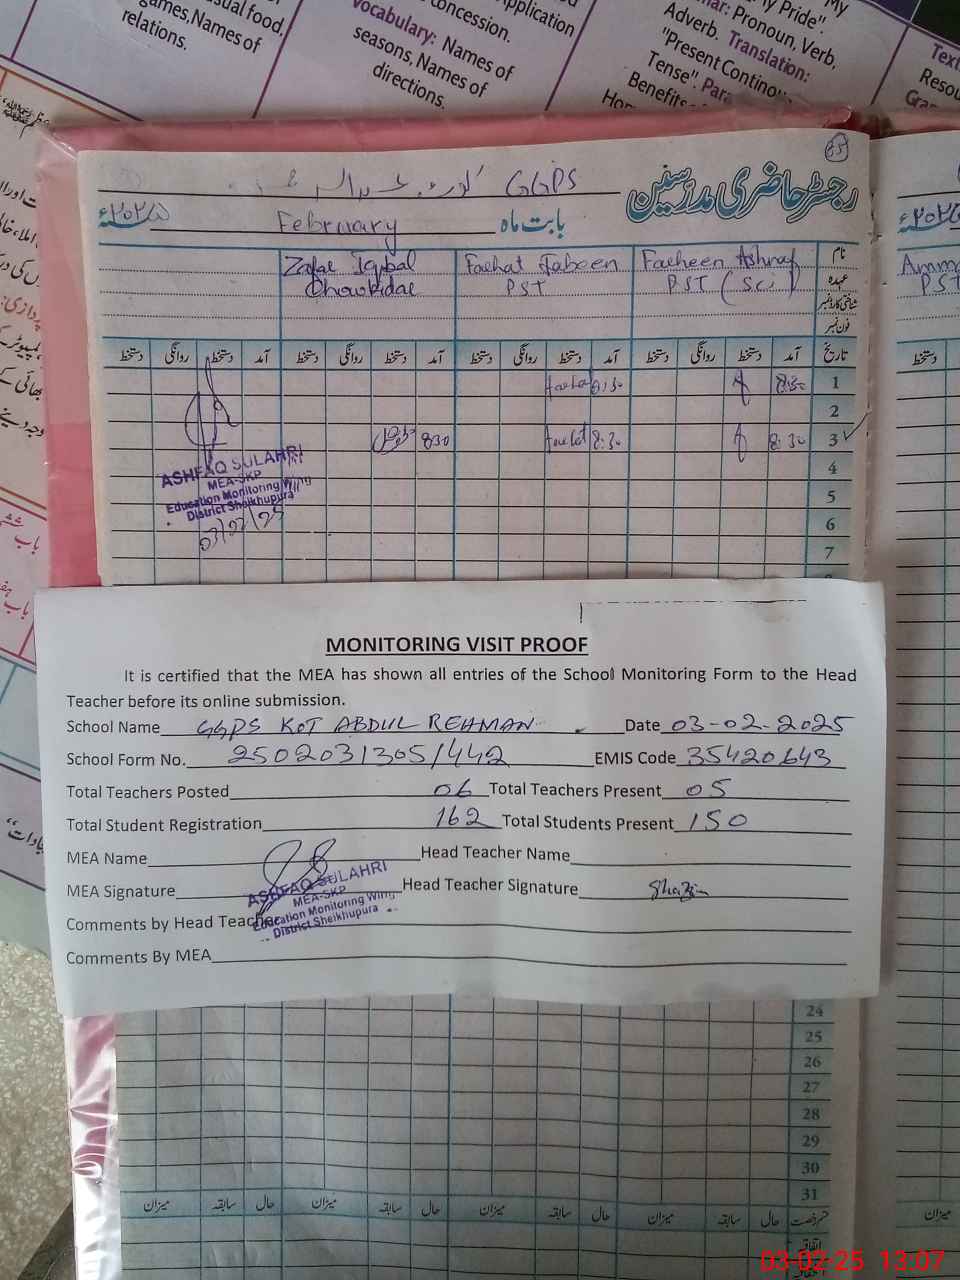 usual food,
games, Names of
relations.
concession.
Vocabulary: Names of
seasons, Names of
directions.
Application
My
My Pride".
Pronoun, Verb,
Adverb. Translation:
"Present Contino
Tense". Para
Benefits
Text
Resou
Gra
35
رجسٹر حاضری مدرسین
GGPS کوٹ عبدالر
بابت ماہ February ۲۰۲۵
نام Farheen Ashraf Farhat Jabeen Zafar Iqbal
عہدہ PST (Sci) PST Chowkidar
شناختی کارڈ نمبر
فون نمبر
Amm
PST
تاریخ آمد دستخط روانگی دستخط آمد دستخط روانگی دستخط آمد دستخط روانگی دستخط آمد دستخط روانگی دستخط
1 8:30 8:30 Farhat
2
3 8:30 8:30 Farhat 830
4
5
6
7
ASHFAQ SULAHRI
MEA-SKP
Education Monitoring Wing
District Sheikhupura
03/02/25
MONITORING VISIT PROOF
It is certified that the MEA has shown all entries of the School Monitoring Form to the Head
Teacher before its online submission.
School Name GGPS KOT ABDUL REHMAN Date 03-02-2025
School Form No. 25020313051442 EMIS Code 35420643
Total Teachers Posted 06 Total Teachers Present 05
Total Student Registration 162 Total Students Present 150
MEA Name Head Teacher Name
MEA Signature Head Teacher Signature
ASHFAQ SULAHRI
MEA-SKP
Education Monitoring Wing
District Sheikhupura
Comments by Head Teacher
Comments By MEA
24
25
26
27
28
29
30
31
حال سابقہ میزان حال سابقہ میزان حال سابقہ میزان حال سابقہ میزان
اتفاقیہ
03-02-25 13:07